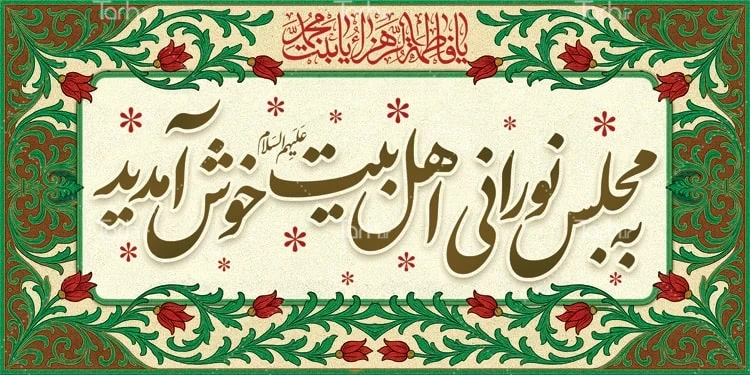 یا فاطمة الزهراء یا بنت محمد
به مجلس نورانی اهل بیت علیهم السلام خوش آمدید
Tarh.ir